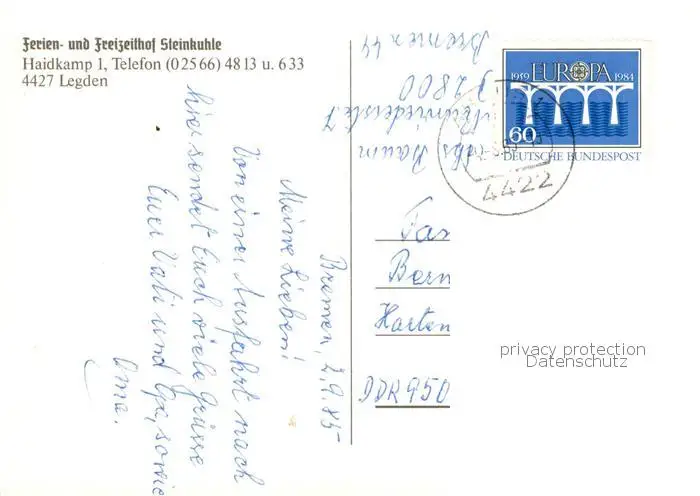 Ferien- und Freizeithof Steinkuhle
Haidkamp 1, Telefon (0 25 66) 48 13 u. 6 33
4427 Legden
Bremen, 2.9.85
Meine Lieben!
Von einer Ausfahrt nach
hier sendet Euch viele Grüsse
Euer Vati und Opa, sowie
Oma.
Baum
D 2800
Bremen 44
EUROPA
1959 1984
60
DEUTSCHE BUNDESPOST
4422
Fa
Bern
Harten
DDR 950
privacy protection
Datenschutz